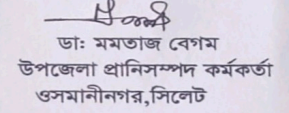 ডাঃ মমতাজ বেগম
উপজেলা প্রানিসম্পদ কর্মকর্তা
ওসমানীনগর,সিলেট